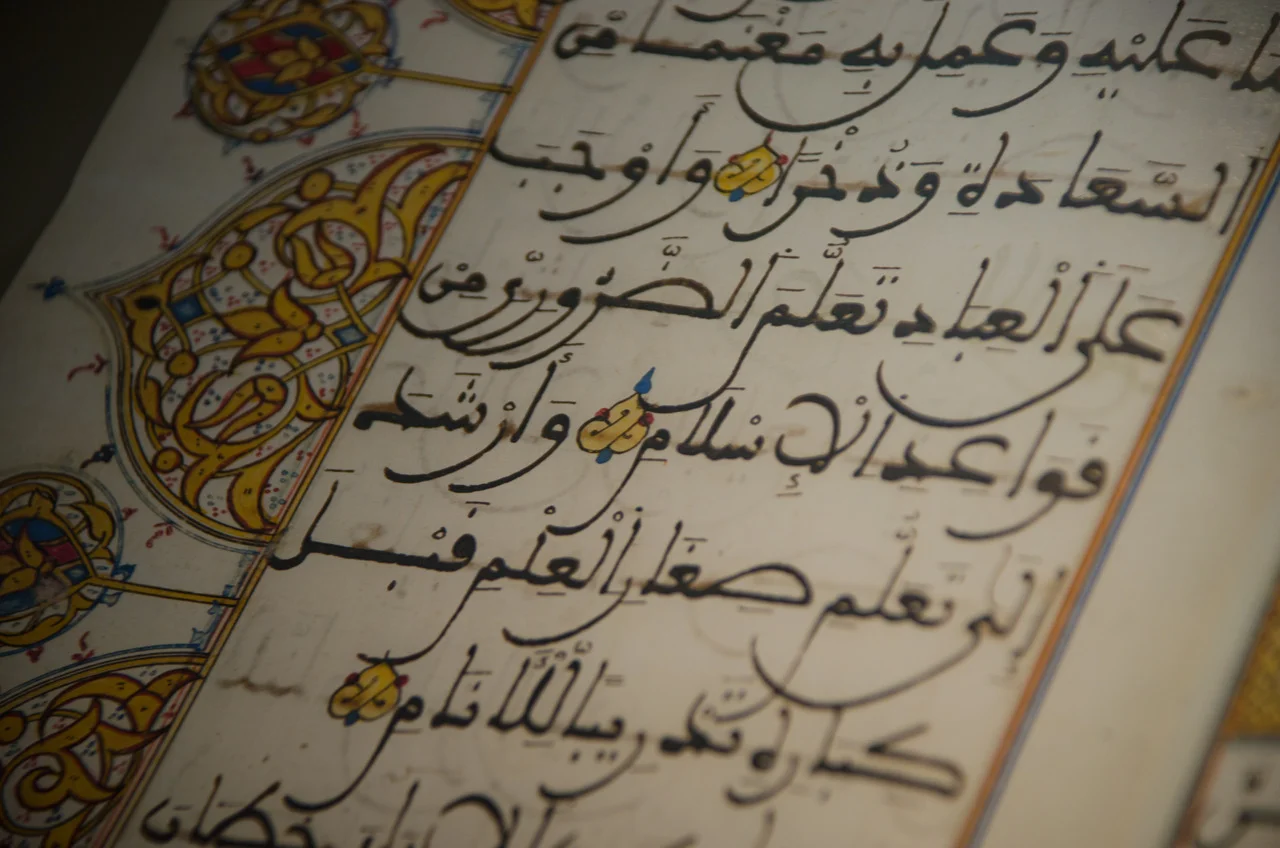 عَلَيْهِ وَعَمِلَ بِهِ مَغْنَمًا مِنَ
السَّعَادَةِ وَذُخْرًا وَأَوْجَبَ
عَلَى الْعِبَادِ تَعَلُّمَ الضَّرُورِيِّ مِنْ
قَوَاعِدِ الْإِسْلَامِ وَأَرْشَدَ
إِلَى تَعَلُّمِ صِغَارِ الْعِلْمِ قَبْلَ
كِبَارِهِ تَدْرِيبًا لِلْأَنَامِ